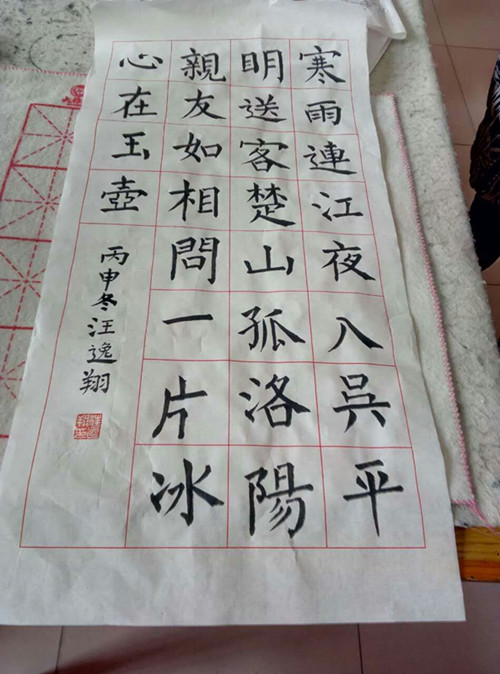 寒雨連江夜入吳平
明送客楚山孤洛陽
親友如相問一片冰
心在玉壺
丙申冬汪逸翔